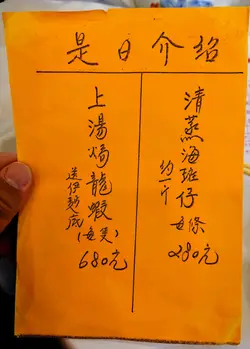 是日介绍
清蒸海班仔
約一斤
每條
280元
上湯焗龍蝦
送伊麵底
(每隻)
680元